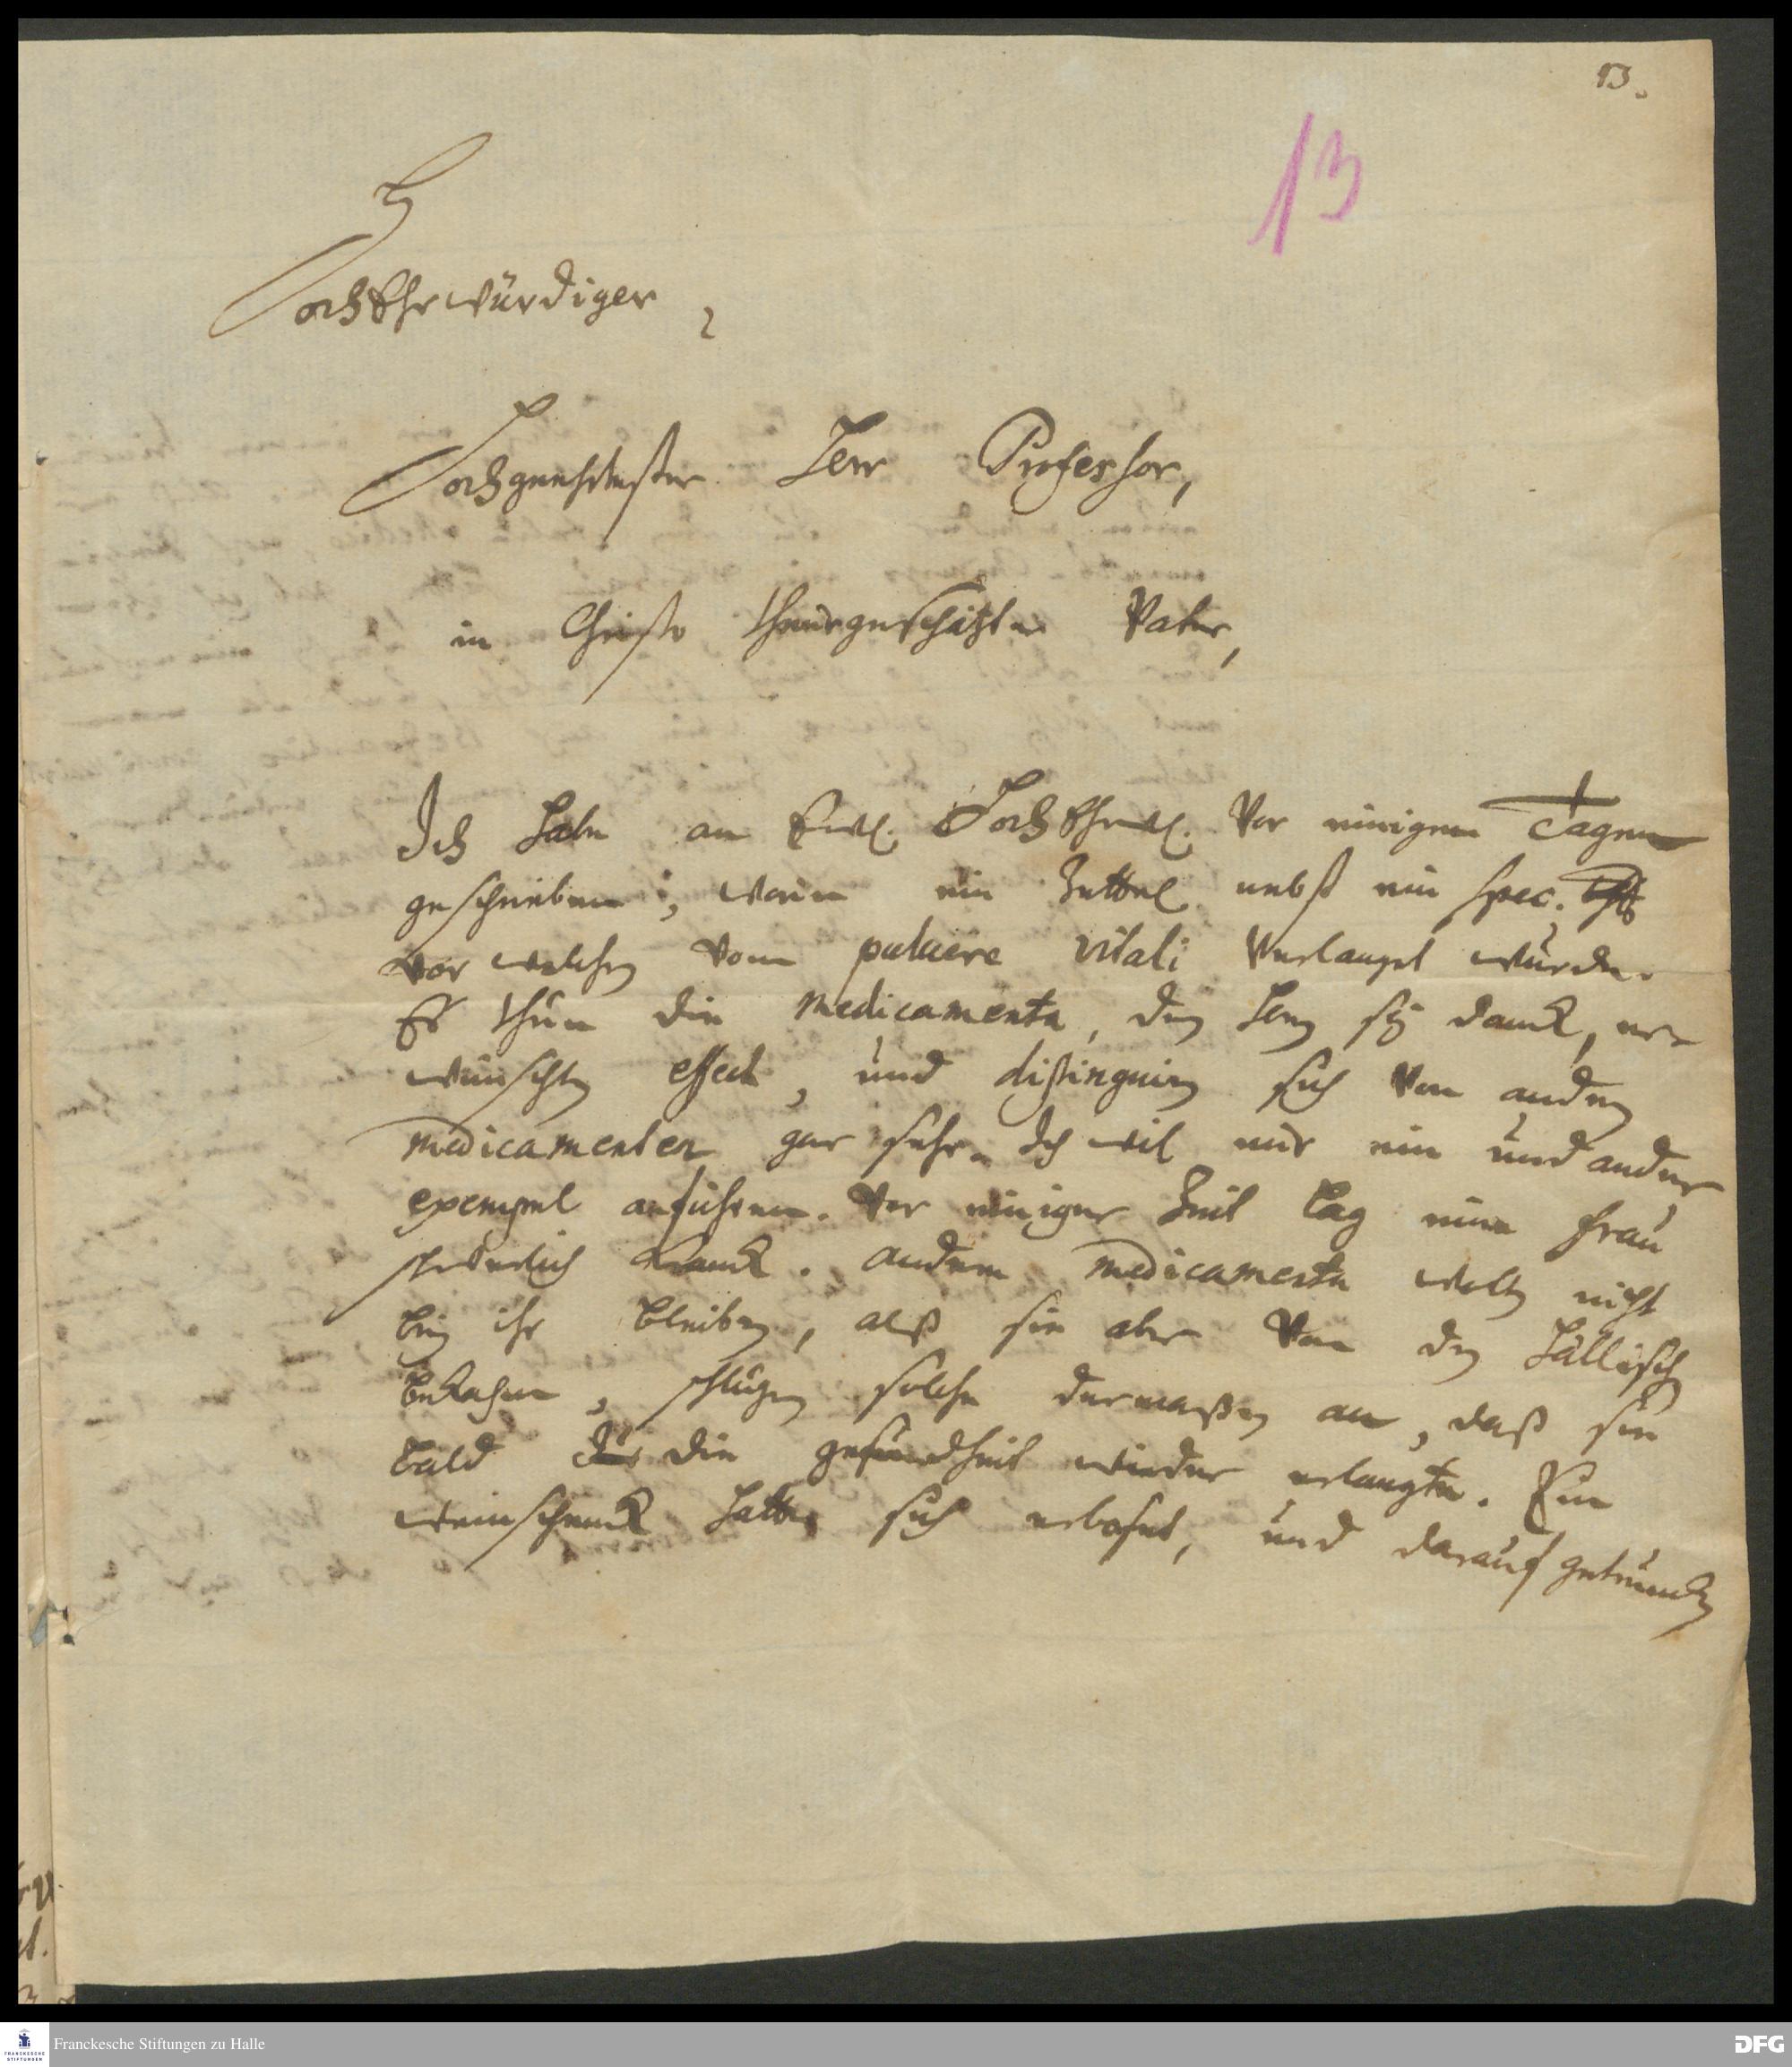 13.
13
HochEhrwürdiger,
Hochgeehrtester Herr Professor,
in Christo theurgeschätzter Vater,
Ich habe an Ewl. HochEhrwl. vor einigen Tagen
geschrieben, worin ein Zettel nebst ein spec.
vor welchen vom pulvere vitali verlanget wurde.
Es thun die medicamenta, dem Herrn sey danck, er-
wünschten effect, und distinguiren sich von andern
medicamenten gar sehr. Ich wil nur ein und ander
exempel anführen. Vor einiger Zeit lag eine frau
sterblich kranck. andere medicamenta wolten nicht
bey ihr bleiben, alß sie aber von den Hällischen
bekahm, schlugen solche dermaßen an, daß sie
bald die gesundheit wieder erlangte. Ein
weinschenck hatte sich erboßet, und darauf getruncken
Franckesche Stiftungen zu Halle
FRANCKESCHE
STIFTUNGEN
DFG